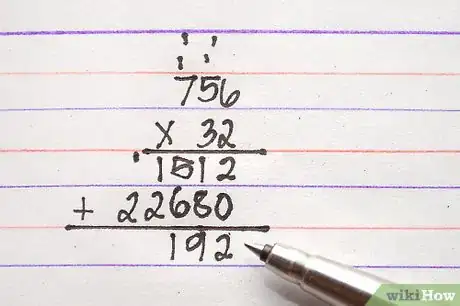 756
x 32
1512
+ 22680
192
wikiHow